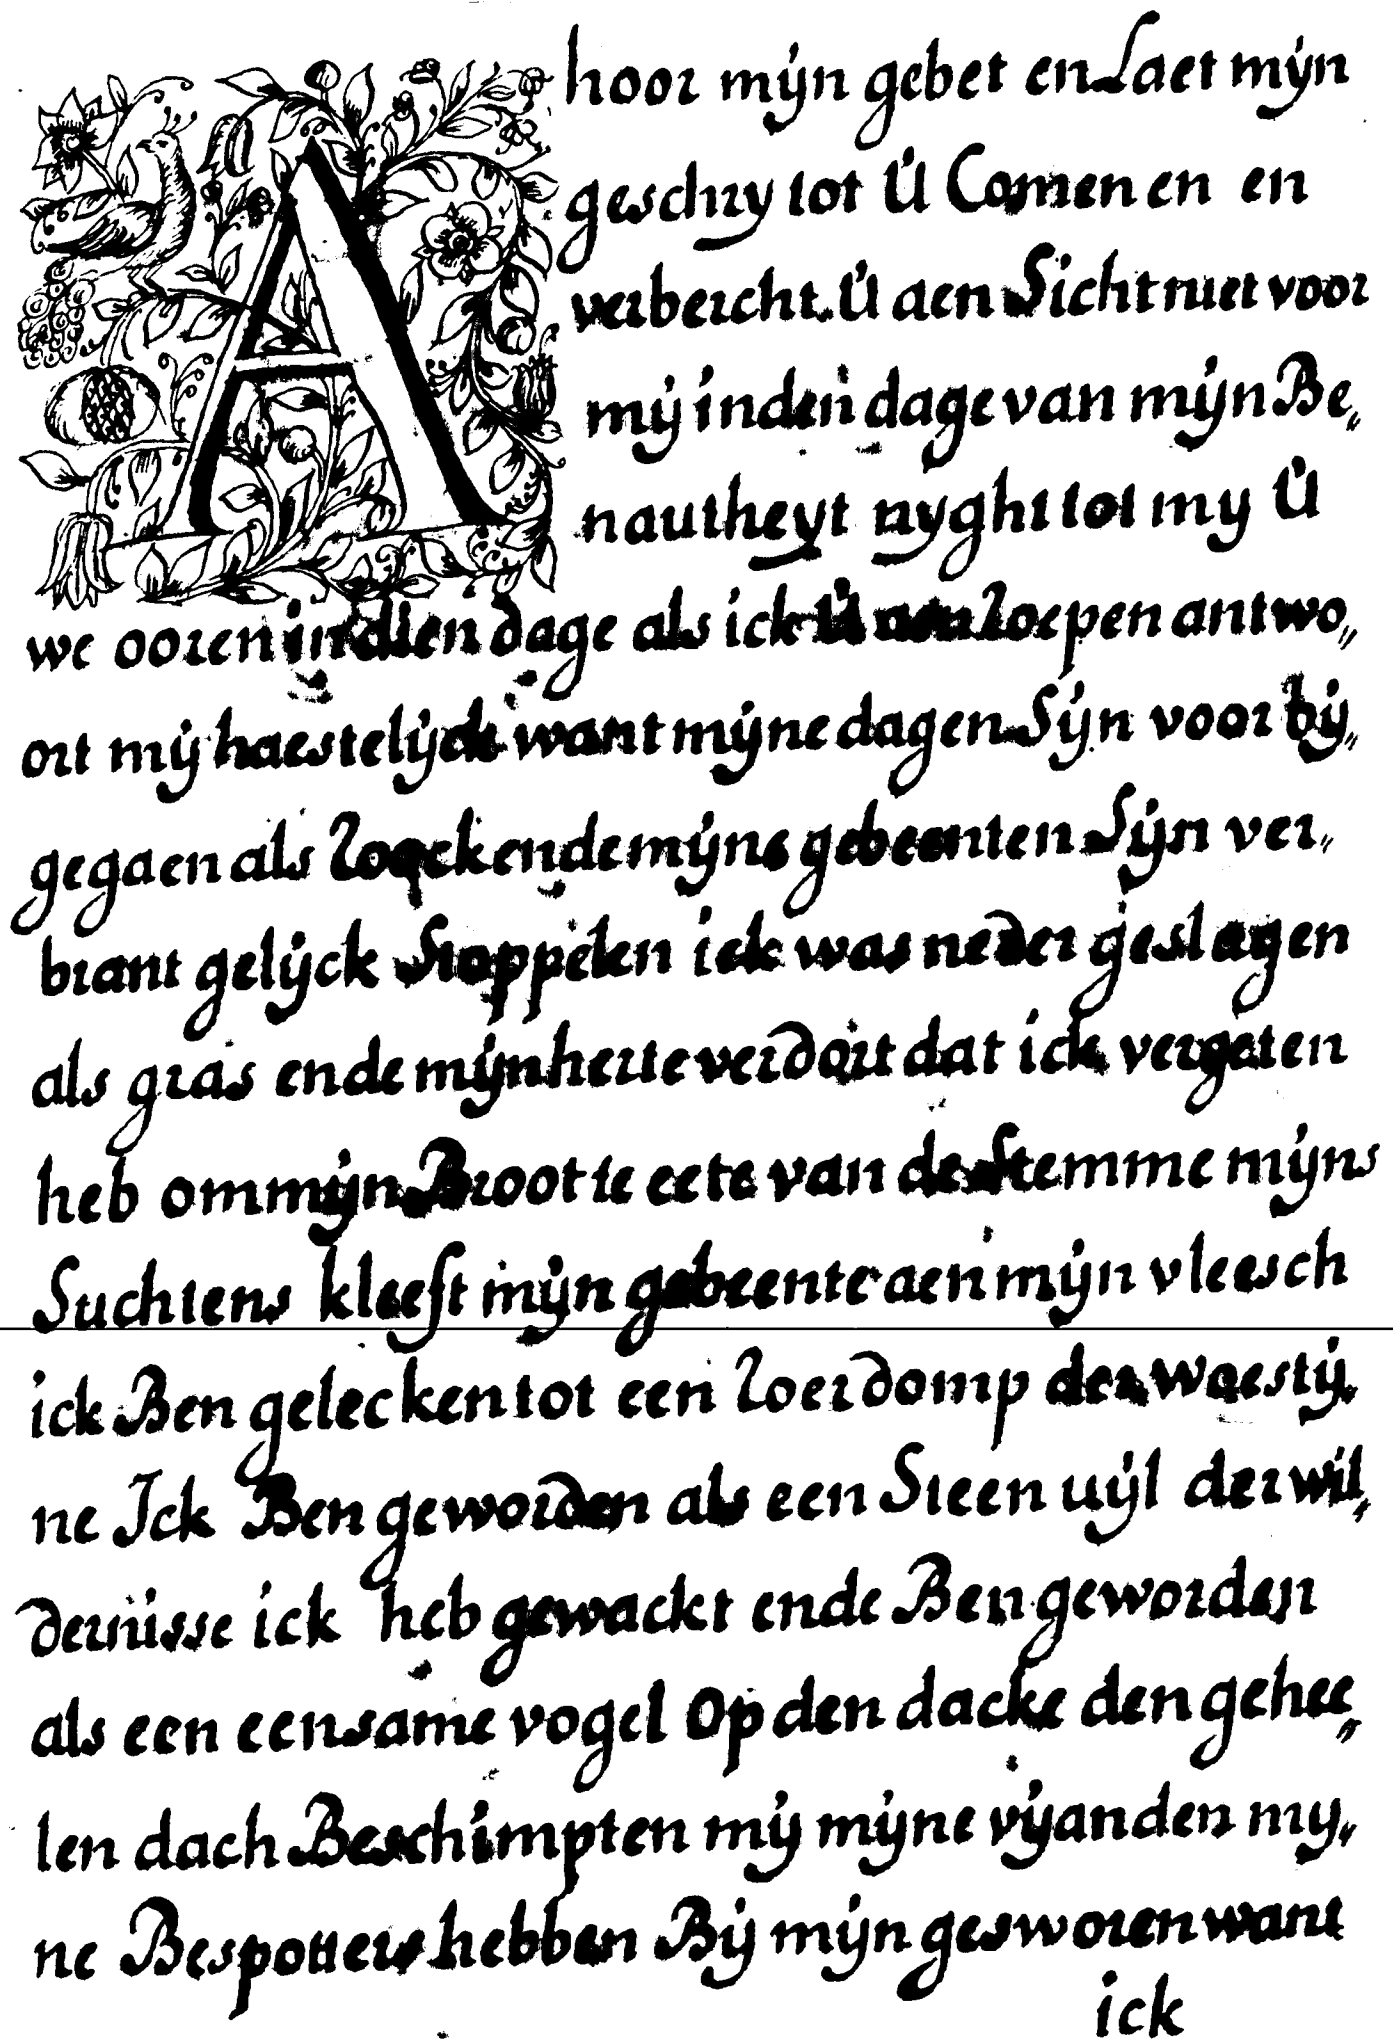 A hoor mÿn gebet en Laet mÿn
geschry tot Ú Comen en en
verbercht Ú aen Sicht niet voor
mÿ inden dage van mÿn Be„
nautheyt nyght tot my Ú
we ooren in dien dage als ick Ú aen Roepen antwo„
ort mÿ haestelÿck want mÿne dagen Sÿn voor bÿ„
gegaen als Roock ende mÿne gebeenten Sÿn ver„
brant gelÿck Stoppelen ick was neder geslagen
als gras ende mÿn herte verdort dat ick vergeten
heb om mÿn Broot te eete van de Stemme mÿns
Suchtens kleeft mÿn gebeente aen mÿn vleesch
ick Ben gelecken tot een Roerdomp der woestÿ„
ne Ick Ben geworden als een Steen uÿl der wil„
dernisse ick heb gewackt ende Ben geworden
als een eensame vogel Op den dacke den gehee„
len dach Beschimpten mÿ mÿne vÿanden my„
ne Bespotters hebben Bÿ mÿn gesworen want
ick